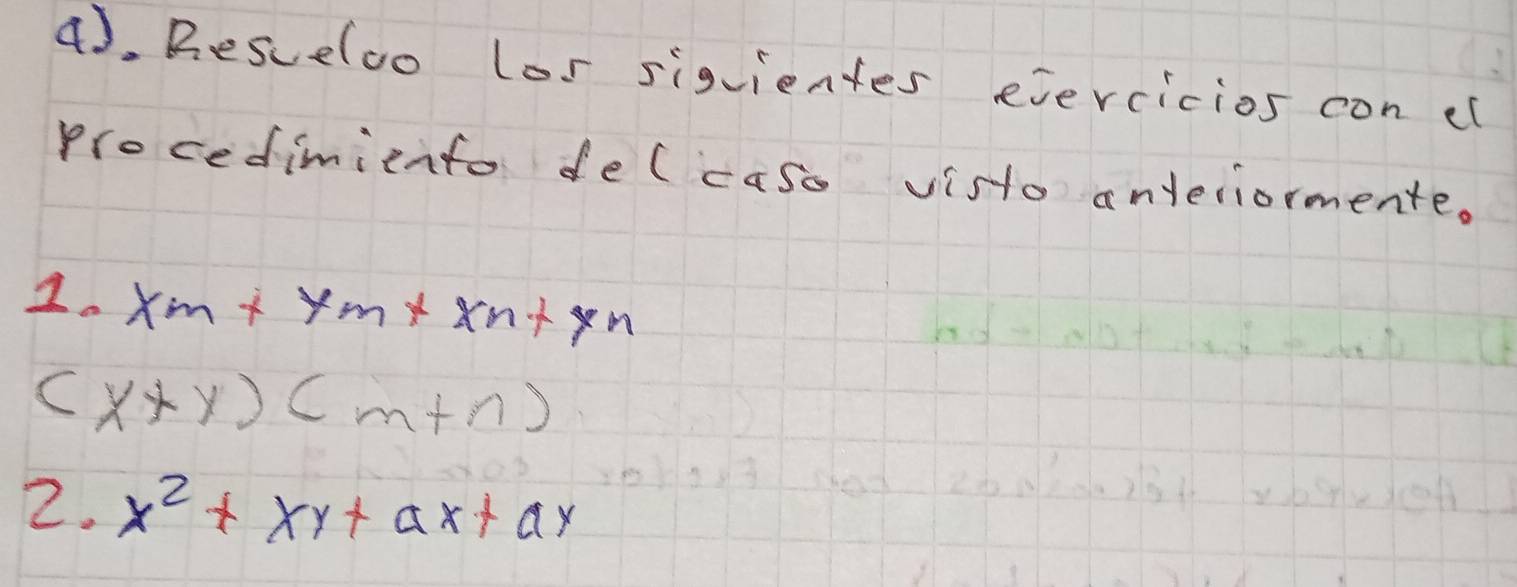 a). Resuelvo los siguientes ejercicios con el
procedimiento del caso visto anteriormente.
1. xm + ym + xn + yn
(x+y)(m+n)
2. x² + xy + ax + ay